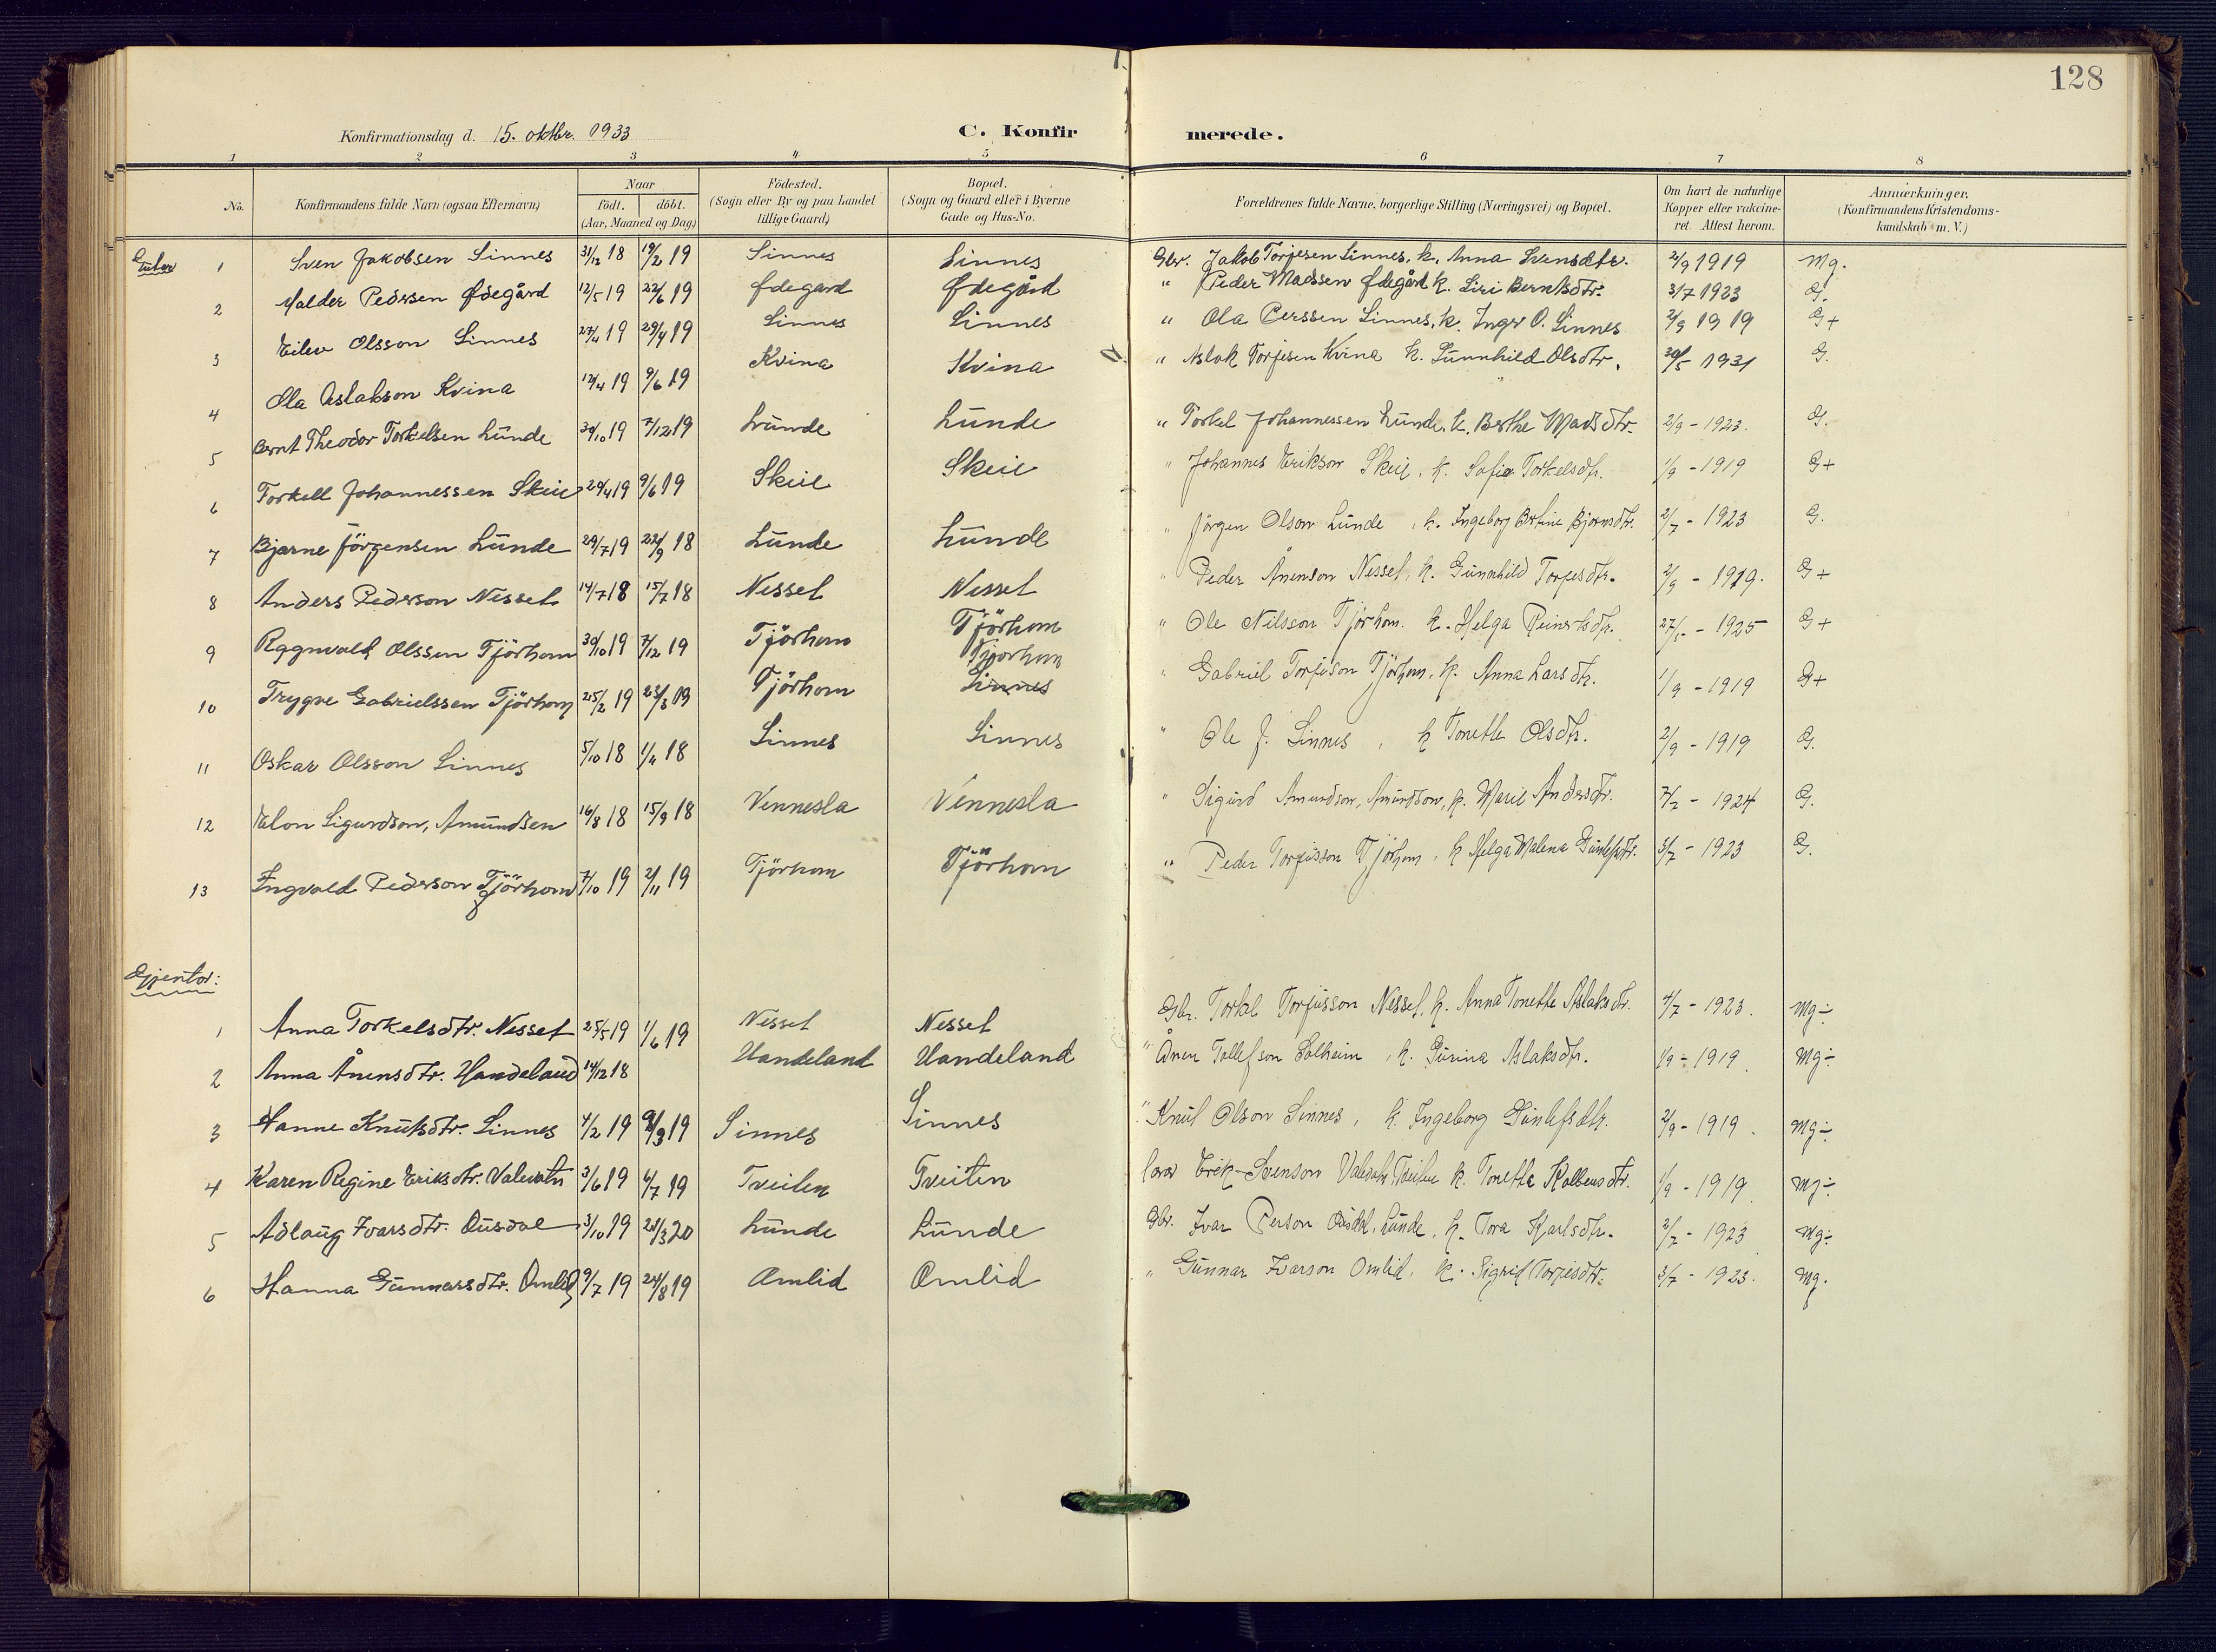 128
Konfirmationsdag d. 15. oktbr. 1933
C. Konfirmerede.
1 2 3 4 5 6 7 8
No. Konfirmandens fulde Navn (ogsaa Efternavn) Naar født. døbt. (Aar, Maaned og Dag) Födested. (Sogn eller By og paa Landet tillige Gaard) Bopæl. (Sogn og Gaard eller i Byerne Gade og Hus-No. Forældrenes fulde Navne, borgerlige Stilling (Næringsvei) og Bopæl. Om havt de naturlige Kopper eller vakcineret. Attest herom. Anmærkninger, (Konfirmandens Kristendomskundskab m. V.)
Guter
1 Sven Jakobsen Sinnes 31/12 18 19/2 19 Sinnes Sinnes Gbr. Jakob Torjesen Sinnes, k. Anna Svensdtr. 2/9 1919 Mg.
2 Halder Pedersen Ødegård 12/5 19 22/6 19 Ødegard Ødegård " Peder Madssen Ødegård k. Siri Berntsdtr. 3/7 1923 G.
3 Eilev Olsson Sinnes 27/4 19 29/4 19 Sinnes Sinnes " Ola Perssen Sinnes, k. Inger O. Sinnes 2/9 1919 G+
4 Ola Aslakson Kvina 12/4 19 9/6 19 Kvina Kvina " Aslak Torjesen Kvina k. Gunnhild Olsdtr. 30/5 1931 G.
5 Bernt Theodor Torkelsen Lunde 30/10 19 7/12 19 Lunde Lunde " Torkel Johannessen Lunde, k. Berthe Madsdtr. 2/9 - 1923. G.
6 Torkell Johannessen Skeie 29/4 19 9/6 19 Skeie Skeie " Johannes Erikson Skeie, k. Sofie Torkelsdtr. 1/9 - 1919 G+
7 Bjarne Jörgensen Lunde 29/7 19 22/9 18 Lunde Lunde " Jörgen Olson Lunde, k. Ingeborg Bertine Bjornsdtr. 2/7 - 1923 G.
8 Anders Pederson Nesset 14/7 18 15/7 18 Nesset Nesset " Peder Ånenson Nesset, k. Gunnhild Torjesdtr. 2/9 - 1919. G+
9 Ragnvald Olssen Tjörhom 30/10 19 7/12 19 Tjörhom Tjörhom " Ole Nilsson Tjörhom. k. Helga Reinertsdtr. 27/5 - 1925 G+
10 Trygve Gabrielssen Tjörhom 25/2 19 23/3 19 Tjörhom Tjorhom Sinnes " Gabriel Torjeson Tjörhom, k. Anna Larsdtr. 1/9 - 1919 G+
11 Oskar Olsson Sinnes 5/10 18 1/4 18 Sinnes Sinnes " Ole J. Sinnes, k Tonette Olsdtr. 2/9 - 1919 G.
12 Elon Sigurdson, Amundsen 16/8 18 15/9 18 Vennesla Vennesla " Sigurd Amundson, Amundson, k. Marie Andersdtr. 7/2 - 1924 G.
13 Ingvald Pederson Tjörhom 7/10 19 2/11 19 Tjörhom Tjörhom " Peder Torjusson Tjörhom, k Helga Malena Gunlefsdtr. 3/7 - 1923 G.
Gjentor:
1 Anna Torkelsdtr. Nesset 25/5 19 1/6 19 Nesset Nesset Gbr. Torkel Torjusson Nesset, k. Anna Tonette Aslaksdtr. 4/7 - 1923. Mg÷
2 Anna Ånensdtr. Handeland 14/12 18 Handeland Handeland " Ånen Tollefson Solheim, k. Gurina Aslaksdtr. 1/9 - 1919. Mg÷
3 Hanne Knutsdtr. Sinnes 4/2 19 9/3 19 Sinnes Sinnes " Knut Olson Sinnes, k. Ingeborg Gunlefsdtr. 2/9 - 1919. Mg÷
4 Karen Regine Eriksdtr. Valevatn 3/6 19 6/7 19 Tveiten Tveiten Erik Svenson Valevatn, Tveiten k. Tonette Kolbensdtr. 1/9 - 1919. Mg÷
5 Adlaug Ivarsdtr. Ousdal 3/10 19 28/3 20 Lunde Lunde Gbr. Ivar Person Ousdal, Lunde, k. Tora Karlsdtr. 2/7 - 1923 Mg÷
6 Hanna Gunnarsdtr. Omlid 9/7 19 24/8 19 Omlid Omlid " Gunnar Ivarson Omlid, k. Sigrid Torjesdtr. 3/7 - 1923. Mg.